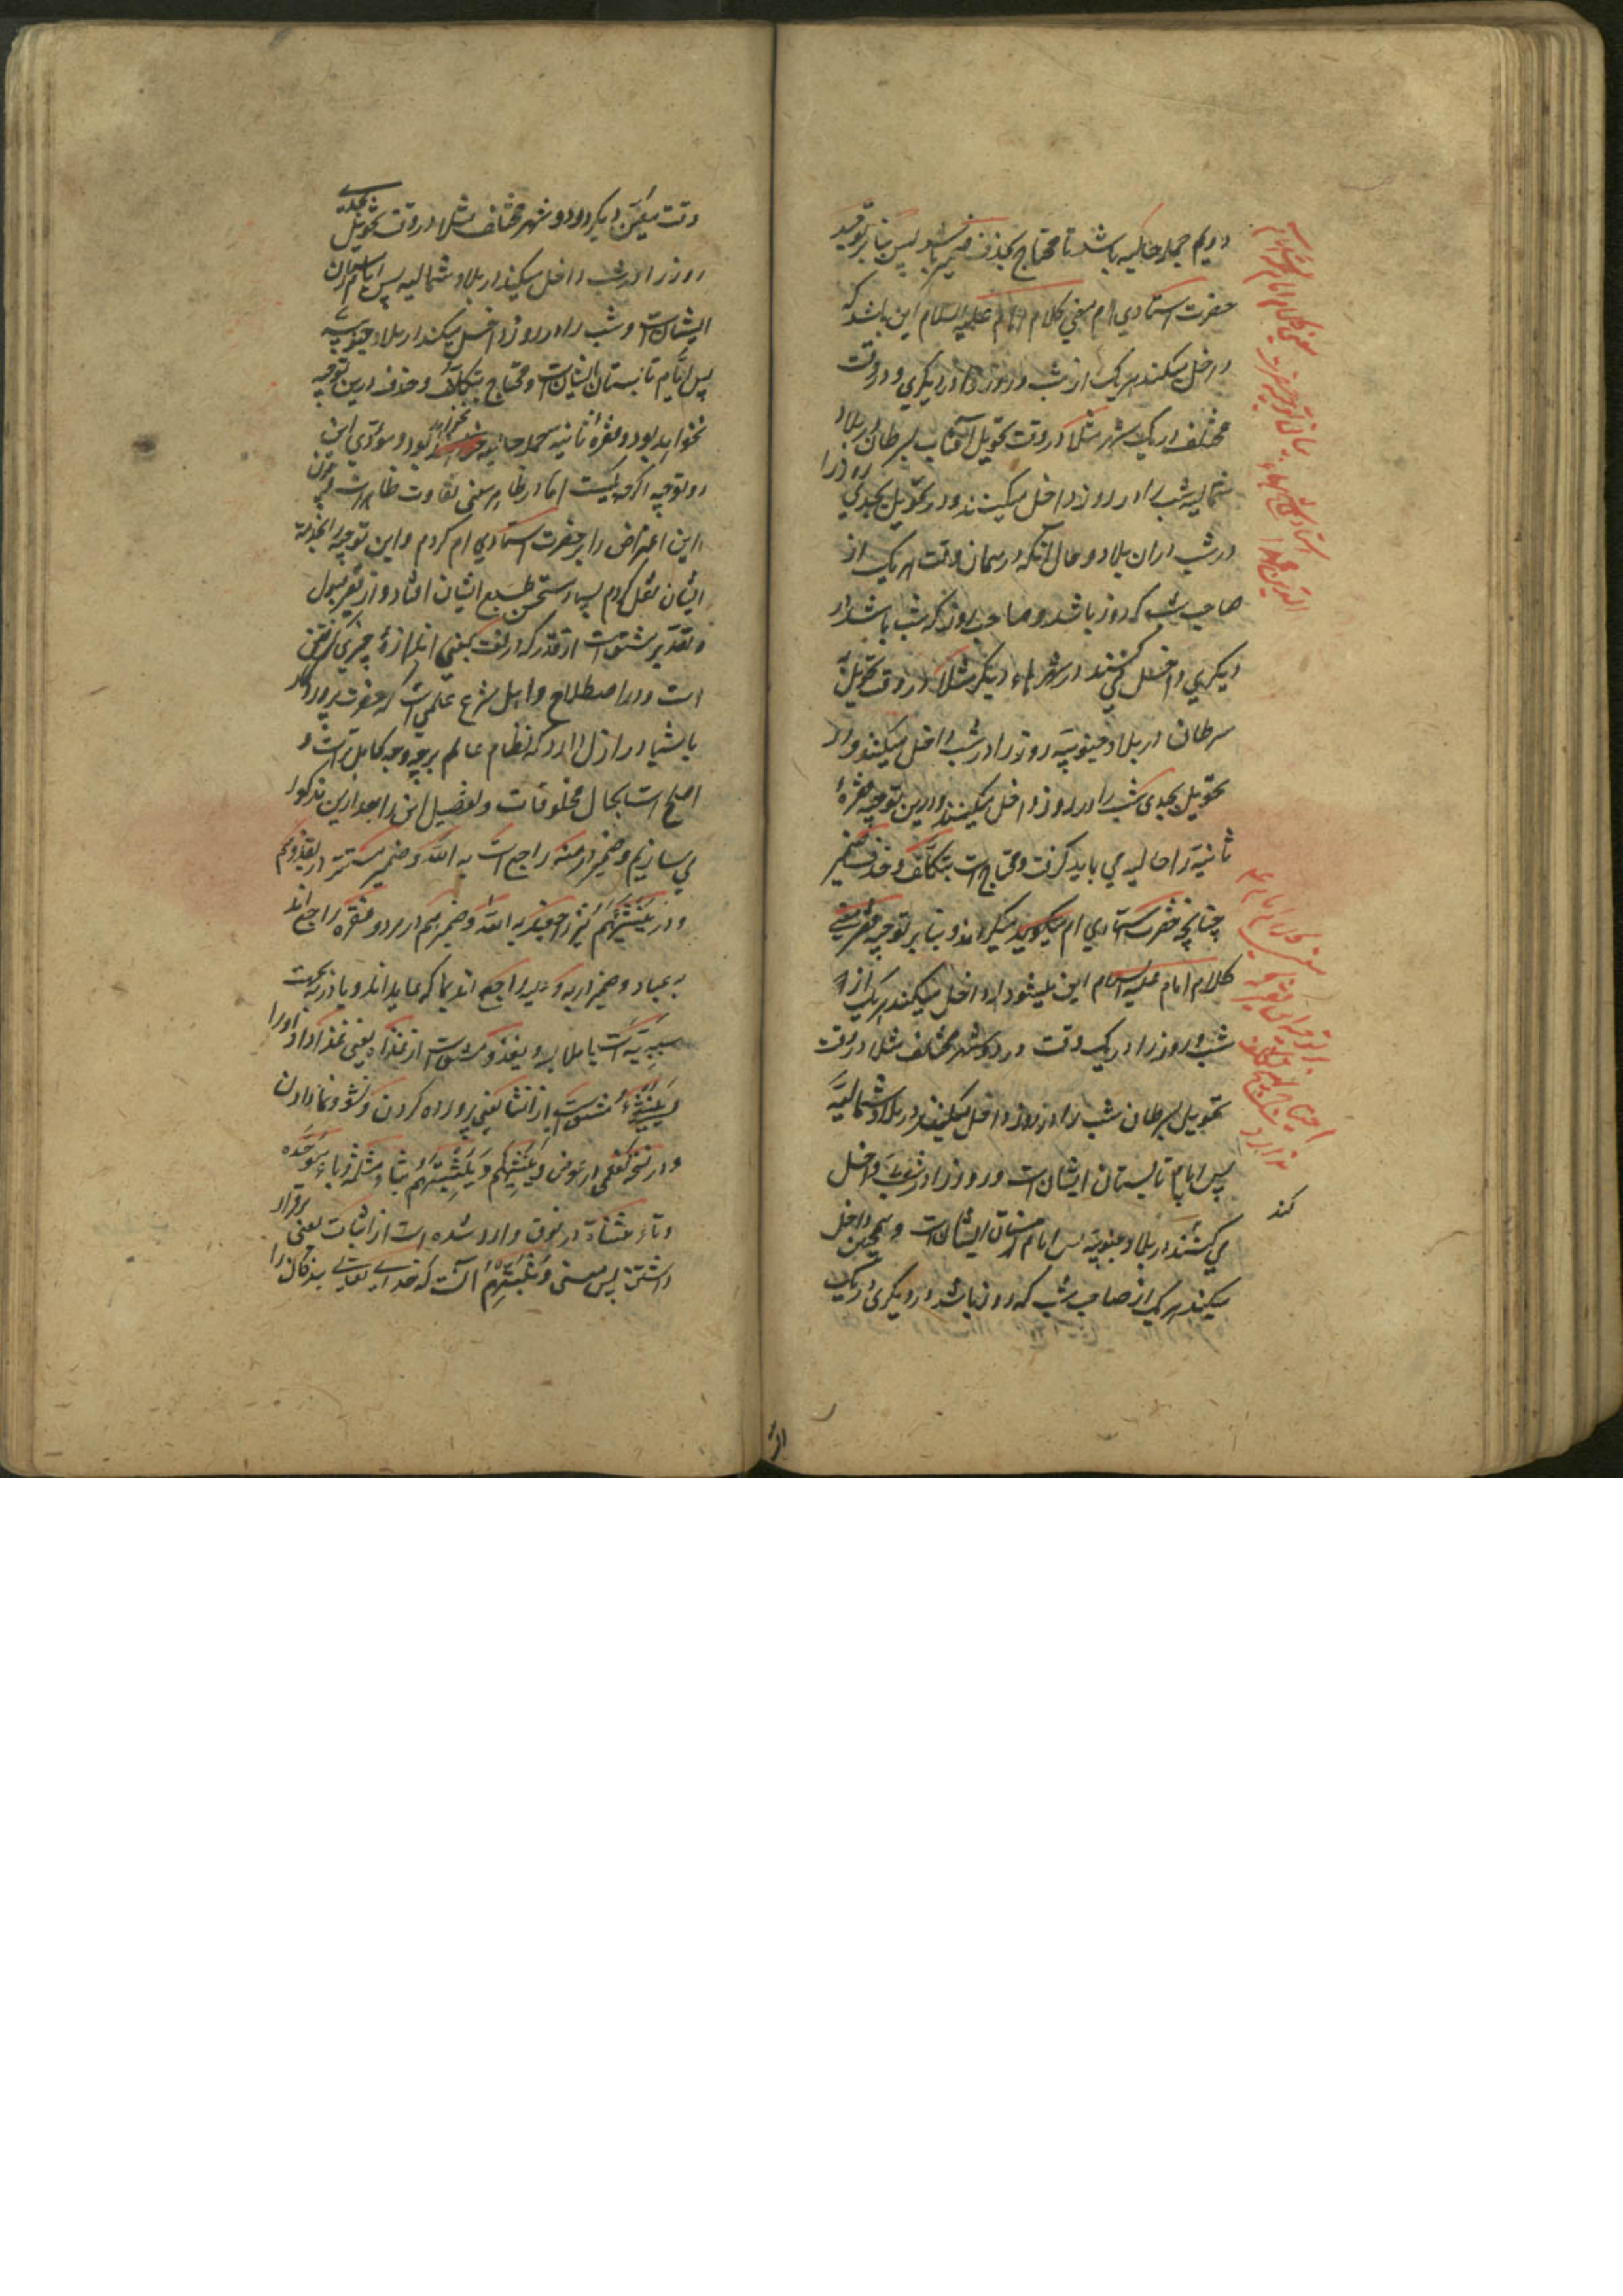 دویم جمله حالیه باشد تا محتاج بحذف ضمیر باشد پس بنابر توجیه
حضرت استادی ام معنی کلام امام علیه السلام این باشد که
داخل میکند هر یک از شب و روز را در دیگری در دو وقت
مختلف در یک شهر مثلا در وقت تحویل آفتاب بسرطان در بلاد
شمالیه شب را در روز داخل میکند و در تحویل بجدی روز را
در شب در آن بلاد و حال آنکه در همان وقت هر یک از
صاحب شب که روز باشد و صاحب روز که شب باشد در
دیگری داخل می کنند در شهرهاء دیگر مثلا در وقت تحویل
سرطان در بلاد جنوبیه روز را در شب داخل میکند و در
تحویل بجدی شب را در روز داخل میکند و درین توجیه فقرهٔ
ثانیه را حالیه می باید گرفت و محتاج است بتکلف و حذف ضمیر
چنانچه حضرت استادی ام میگیرند و بنابر توجیه فقیر معنی
کلام امام علیه السلام این میشود که داخل میکند هر یک از
شب و روز را در یک وقت در دو شهر مختلف مثلا در وقت
تحویل بسرطان شب را در روز داخل میکند در بلاد شمالیه
پس ایام تابستان ایشان است و روز را در شب داخل
می کند در بلاد جنوبیه پس ایام زمستان ایشان است و همچنین داخل
میکند هر یک از صاحب شب که روز باشد در دیگری در یک
کند
وقت معین دیگر در دو شهر مختلف مثلا در وقت تحویل بجدی
روز را در شب داخل میکند در بلاد شمالیه پس ایام زمستان
ایشان است و شب را در روز داخل میکند در بلاد جنوبیه
پس ایام تابستان ایشان است و محتاج بتکلف و حذف درین توجیه
نخواهد بود و فقرهٔ ثانیه جمله حالیه نخواهد بود و مؤدی این
دو توجیه اگرچه یکیست اما در ظاهر معنی تفاوت ظاهر است چون
این اعتراض را بر حضرت استادی ام کردم و این توجیه را بخدمت
ایشان نقل کردم بسیار مستحسن طبع ایشان افتاد و از فقیر قبول
و تقدیر مشتق است از قدر که در لغت بمعنی اندازهٔ چیزی گرفتن
است و در اصطلاح اهل شرع علمی است که حضرت پروردگار
باشیا در ازل دارد که نظام عالم بر چه وجه کامل تر است و
اصلح است بحال مخلوقات و تفصیل این را بعد ازین مذکور
می سازیم و ضمیر در منه راجع است به الله و ضمیر مستتر در یغذوهم
و در ینشئهم نیز راجعند به الله و ضمیر هم در هر دو فقره راجع اند
به عباد و ضمیر در به و علیه راجع اند بما که عاید اند و با در به بجهت
سببیت است یا ملابسه و یغذو مشتق است از غذا یعنی غذا داد او را
و ینشئ مشتق است از انشا یعنی پرورده کردن و نشو و نما دادن
و در نسخه کفعمی در عوض و ینشئهم و یثبتهم بثاء مثلثه و باء موحده
و تاء مثناة در فوق وارد شده است از اثبات یعنی برقرار
داشتن پس معنی و یثبتهم آنست که خدای تعالی بندگان را